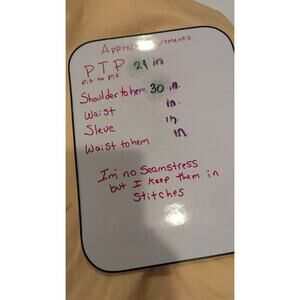 PTP 29 in
pit to pit
Shoulder to hem 30 in.
Waist in.
Sleve in.
Waist to hem in
I'm no Seamstress
but I keep them in
Stitches